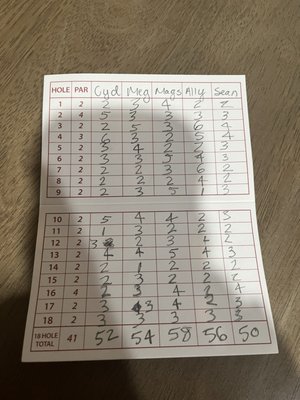 HOLE PAR Cyd Meg Mags Ally Sean
1 2 2 3 4 2 2
2 4 5 3 3 3 3
3 2 2 5 3 6 4
4 3 6 3 2 5 4
5 2 5 4 2 2 3
6 2 3 3 5 4 3
7 2 2 2 3 6 2
8 2 2 2 2 4 2
9 2 2 3 5 1 3
10 2 5 4 4 2 3
11 2 1 3 2 2 2
12 2 3 2 3 4 2
13 2 4 4 5 4 3
14 2 2 1 2 2 2
15 2 2 3 2 2 2
16 4 2 3 4 3
17 2 3 3 4 2 3
18 2 3 3 3 3 3
18 HOLE TOTAL 41 52 54 58 56 50